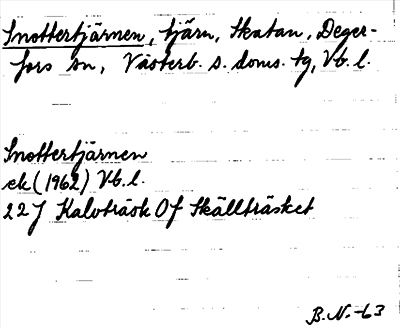 Snottertjärnen, tjärn, Skatan, Deger-
fors sn, Västerb. s. doms. tg, Vb. l.
Snottertjärnen
ek (1962) Vb. l.
22J Kalvträsk 0f Skällträsket
B.N. -63